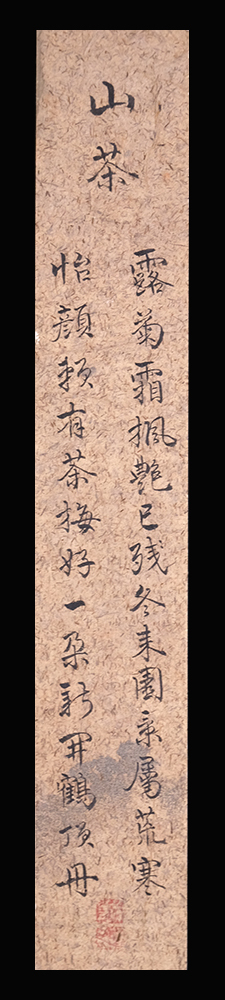 山茶
露菊霜楓艷已残冬来園景属荒寒
怡顔頼有茶梅好一朶新開鶴頂丹